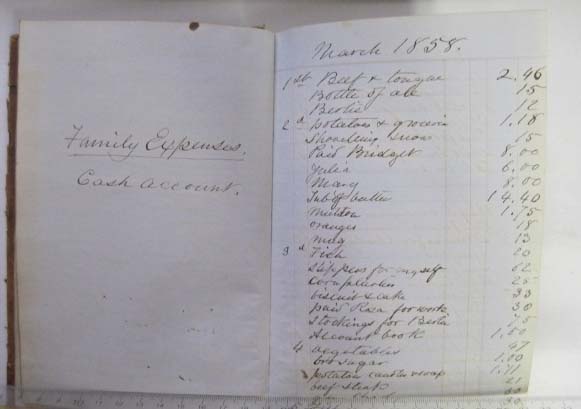 Family Expenses.
Cash account.
March 1858.
1st Beef & tongue 2.46
Bottle of ale 15
Bertie 12
2d potatoes & groceries 1.18
Shovelling snow 15
Paid Bridget 8.00
Julia 6.00
Mary 8.00
Tub of butter 14.40
Mutton 1.75
oranges 18
mug 13
3d Fish 20
Slippers for myself 62
Corn plaster 25
biscuit & cake 33
paid Rosa for work 30
Stockings for Bertie
Account book 1.00
4 vegetables 47
sugar 1.00
potatoes candles & soap 1.71
beef steak 21
30